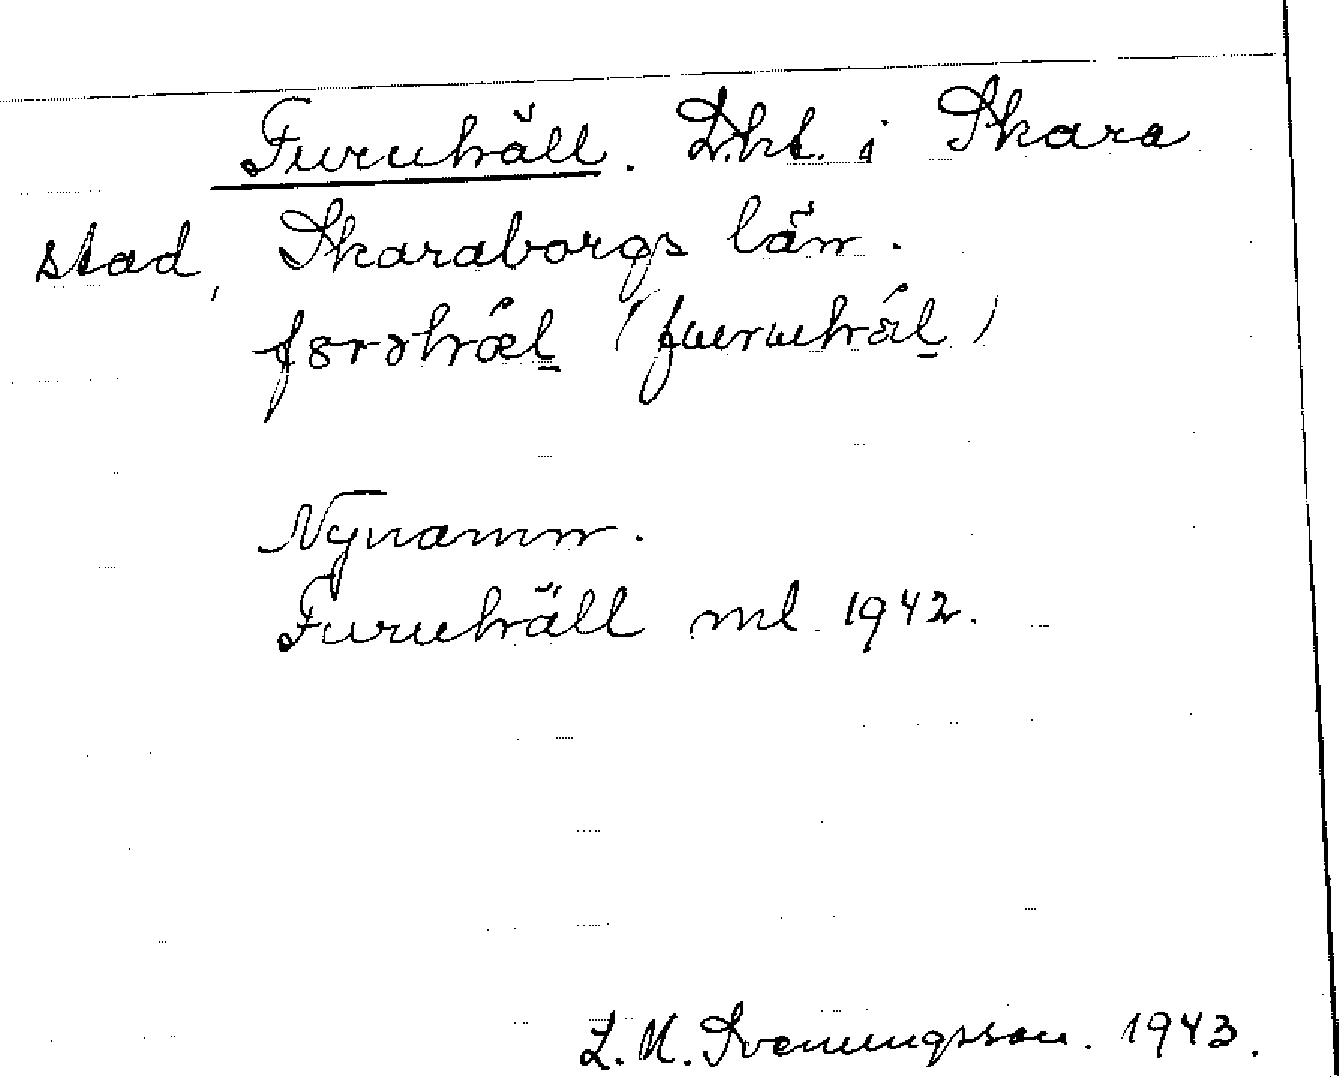 Furuhäll. Lht. i Skara
stad, Skaraborgs län.
Nynamn.
Furuhäll ml 1942.
L. M. Svenungsson. 1943.